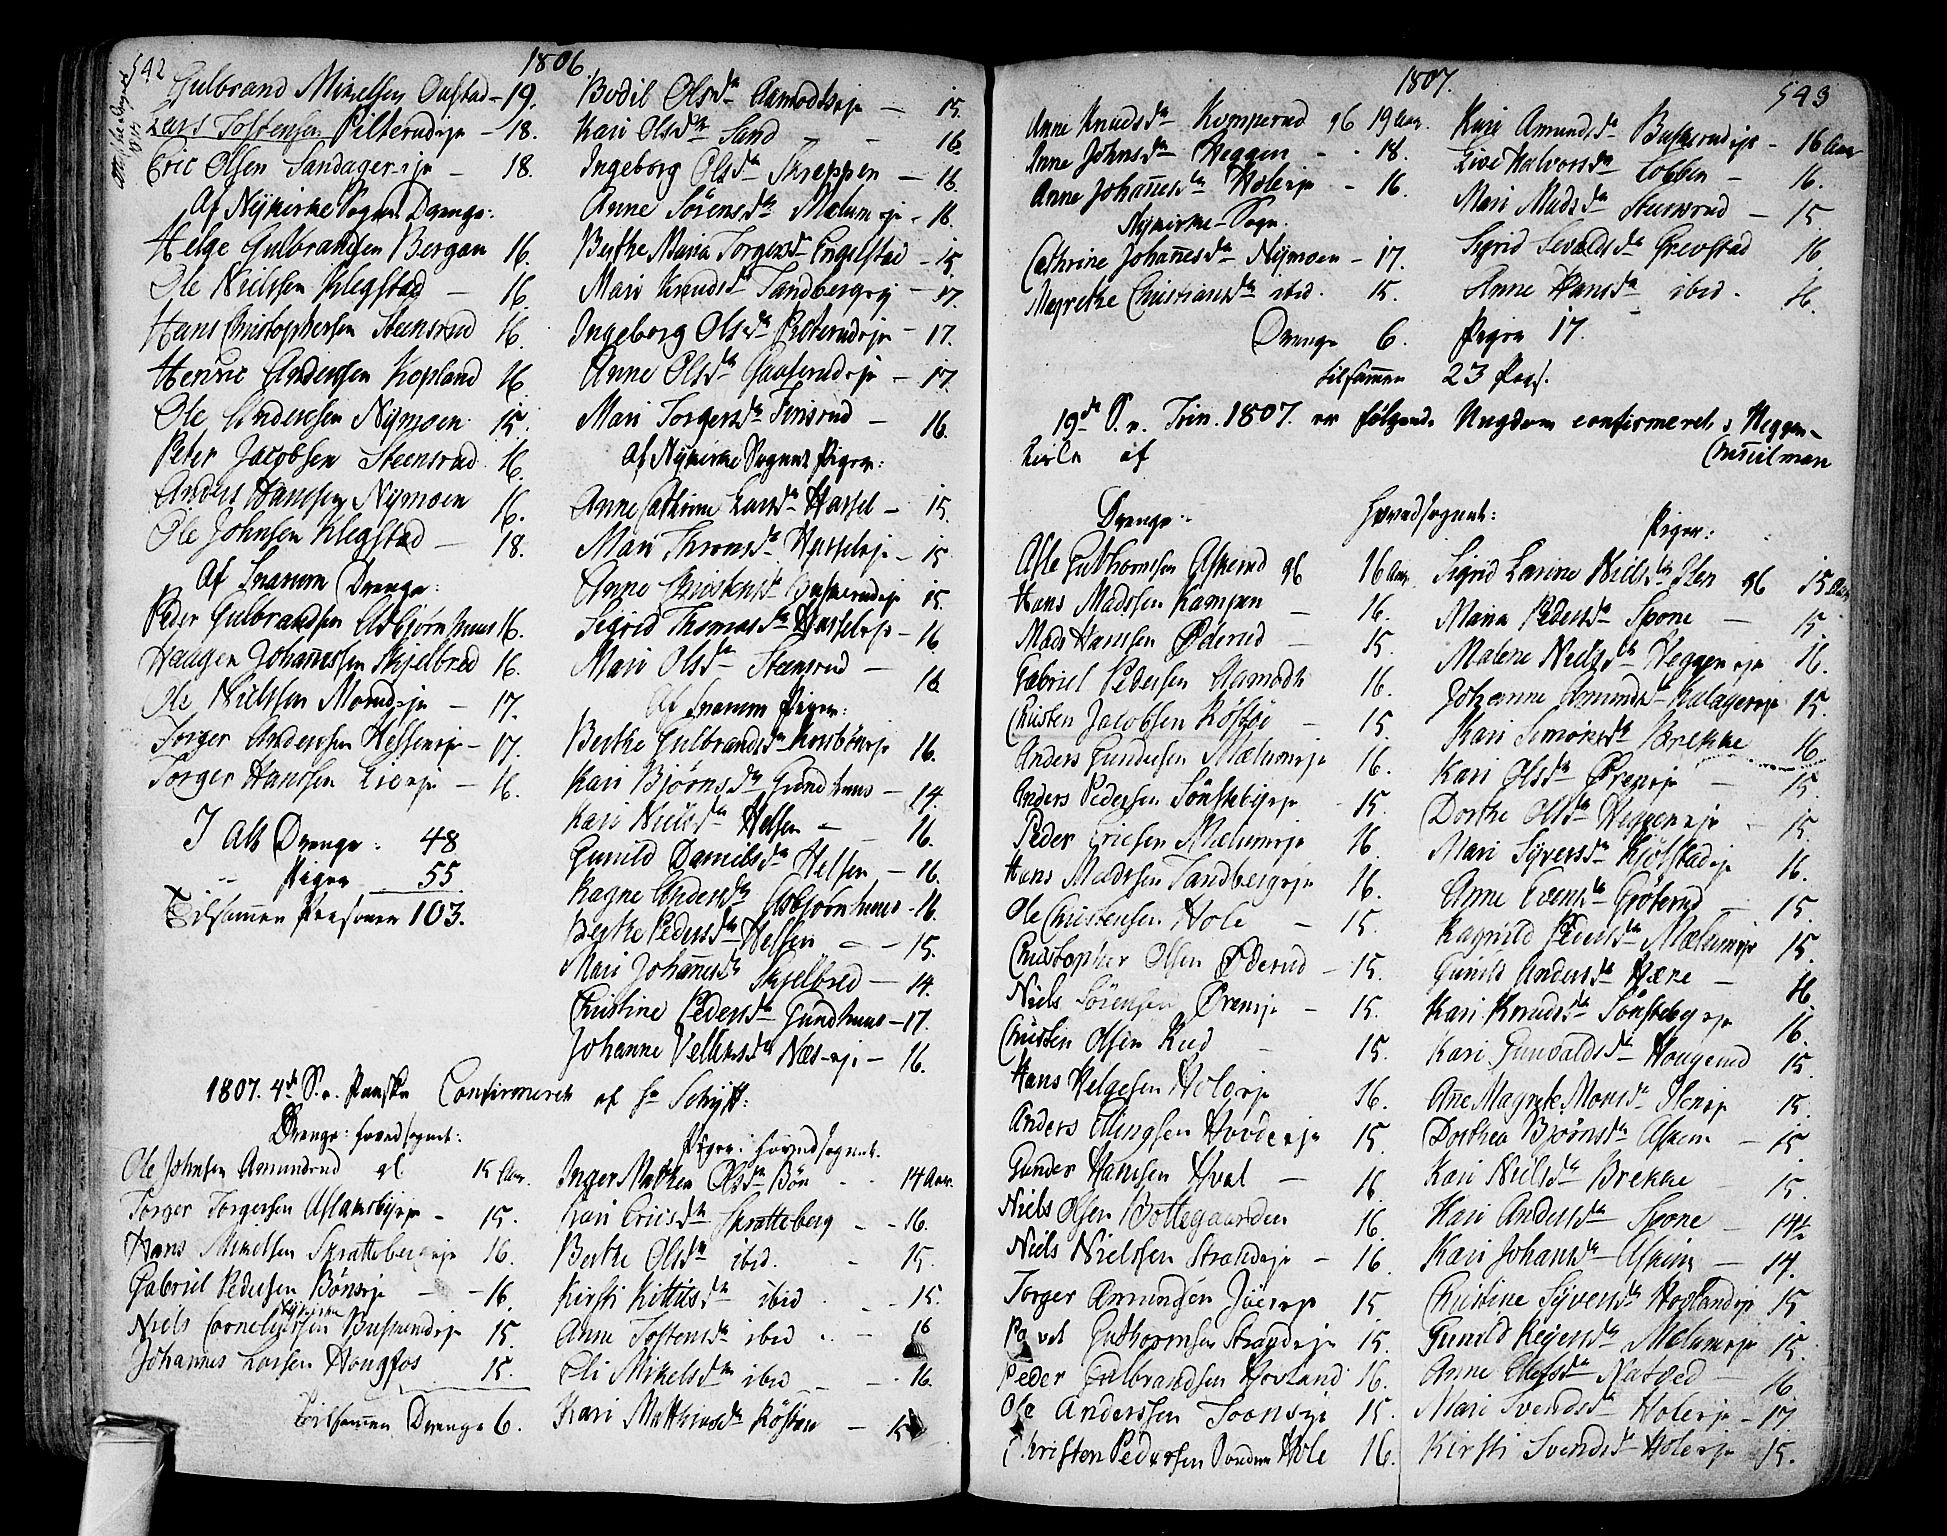 542
1806.
Gulbrand Mikelsen Oustad - 19.
Lars Tostensen Pilterudeje - 18.
Eric Olsen Sandager-eje - 18.
Af Nykirke Sogn Drenge:
Helge Gulbrandsen Bergan 16.
Ole Nielsen Klegstad - 16.
Hans Christophersen Steensrud 16.
Henric Andersen Kopland 16.
Ole Andersen Nymoen 15.
Peter Jacobsen Steensrud 16.
Anders Hansen Nymoen 16.
Ole Johnsen Klegstad - 18.
Af Snarum Drenge:
Peder Gulbrandsen Asbjørnhuus 16.
Haagen Johannessen Skjelbred 16.
Ole Nielsen Moeneje - 17.
Torger Andersen Helleneje - 17.
Torger Hansen Liereje - 16.
I Alt Drenge: 48
" Piger 55
Tilsammen Personer 103.
Bodil Olsdr Aamodteje - 15.
Kari Olsdr Sand - 16.
Ingeborg Olsdr Skreppen - 16.
Anne Sørensdr Mælumeje - 16.
Berthe Maria Torgersdr Engelstad - 15.
Mari Knudsdr Sandbergeje - 17.
Ingeborg Olsdr Roterudeje - 17.
Anne Olsdr Gauserudeje - 17.
Mari Torgersdr Finsrud - 16.
af Nykirke Sognet Piger:
Anne Cathrine Larsdr Hassel - 15.
Mari Thronsdr Hasseleje - 15.
Anne Christensdr Buskerudeje 15.
Sigrid Thomasdr Hasseleje - 16
Mari Olsdr Steensrud - 16.
Af Snarum Piger:
Berthe Gulbrandsdr Korsbøneje 16.
Kari Bjørnsdr Grundhuus - 14.
Kari Nielsdr Helsen - 16.
Gunild Danielsdr Helsen - 16.
Ragne Andersdr Asbjørnhuus - 16.
Berthe Pedersdr Helsen - - 15.
Mari Johannesdr Skjelbred - 14.
Christine Pedersdr Grundhuus - 17.
Johanne Velhersdr Næs-eje - 16.
1807. 4de S. e. Paaske Confirmeret af Hr Schytt:
Drenge: Hovedsognet:
Ole Johnsen Amundrud gl 15 Aar.
Torger Torgersen Aslaksbyeje - 15.
Hans Mikelsen Skrattebergeje 16.
Gabriel Pedersen Bøneje - - 16.
Nykirke
Niels Corneliussen Buskerudeje 15.
Johannes Larsen Hougfos 15.
Tilsammen Drenge 6.
Piger: Hovedsognet:
Inger Mathea Olsdr Bøn - - 14 Aar.
Kari Ericsdr Skratteberg - - 16.
Berthe Olsdr ibid. 15.
Kirsti Kittilsdr ibid - - 15.
Anne Tostensdr ibid - - 16
Eli Mikelsdr ibid - - 16.
Kari Mathiasdr Røsten - 15
1807.
543
Anne Knudsdr Komperud gl 19 Aar.
Anne Johnsdr Heggen - - 18.
Anne Johannesdr Holeeje - 16.
Nykirke-Sogn.
Cathrine Johannesdr Nymoen - 17.
Magrethe Christiansdr ibid. 15.
Kari Amundsdr Buskerudeje - 16 Aar
Live Halvorsdr Lobben - 16.
Mari Madsdr Steensrud - 15.
Sigrid Sevaldsdr Grevstad 16
Anne Hansdr ibid. 16.
Drenge 6. Piger 17.
tilsammen 23 Pers.
19de S. e. Trin. 1807. er følgende Ungdom confirmeret i Heggen-
Kirke af Consielman
Drenge: Hovedsognet: Piger:
Asle Guthormsen Askerud gl 16 Aar.
Hans Madssen Kampen - 16.
Mads Hansen Øderud - 15.
Gabriel Pedersen Aamodt 16.
Christen Jacobsen Røstøe - 15.
Anders Gundersen Mælumeje 16.
Anders Pedersen Sønstebyeje - 15.
Peder Ericsen Mælumeje 16.
Hans Madssen Sandbergeje 16.
Ole Christensen Hole - 15.
Christopher Olsen Øderud - 15.
Niels Sörensen Øreneje - 15.
Christen Olsen Rud - 15.
Hans Helgesen Holeeje 16.
Anders Ellingsen Hovdeeje 15.
Gunder Hansen Hval - 16.
Niels Olsen Bottegaarden 16.
Niels Nielsen Strandeje - 16.
Torger Amundsen Jüereje 15.
Povel Guthormsen Strandeje 15.
Peder Gulbrandsen Hovland 16.
Ole Anderssen Toenseje 15.
Christen Pedersen Sondre Hole 16.
Sigrid Larine Nielsdr Ilen gl 15 Aar
Maria Pedersdr Spone - 15.
Malene Nielsdr Heggeneje 16.
Johanne Amundsdr Kalagereje 15.
Kari Simonsdr Brekke 16
Kari Olsdr Øreneje - 15.
Dorthe Olsdr Heggeneje - 15.
Mari Syversdr Kiølstadeje 16.
Anne Evensdr Grøterud - 15.
Ragnild Pedersdr Mælumeje 15.
Gunild Andersdr Hære - 16.
Kari Knudsdr Sønstebyeje 16.
Kari Gunvaldsdr Hougerud 15.
Ane Magrete Monsdr Ileneje 15.
Dorthea Bjørnsdr Askim - 15.
Kari Nielsdr Brekke - 15.
Kari Andersdr Spone - 14½
Kari Johansdr Askim - 14.
Christine Syversdr Hovlandeje 15
Gunild Reyersdr Mælumeje 15.
Anne Olefsdr Natved - 16.
Mari Svendsdr Holeeje - 17
Kirsti Svendsdr Holeeje - 15.